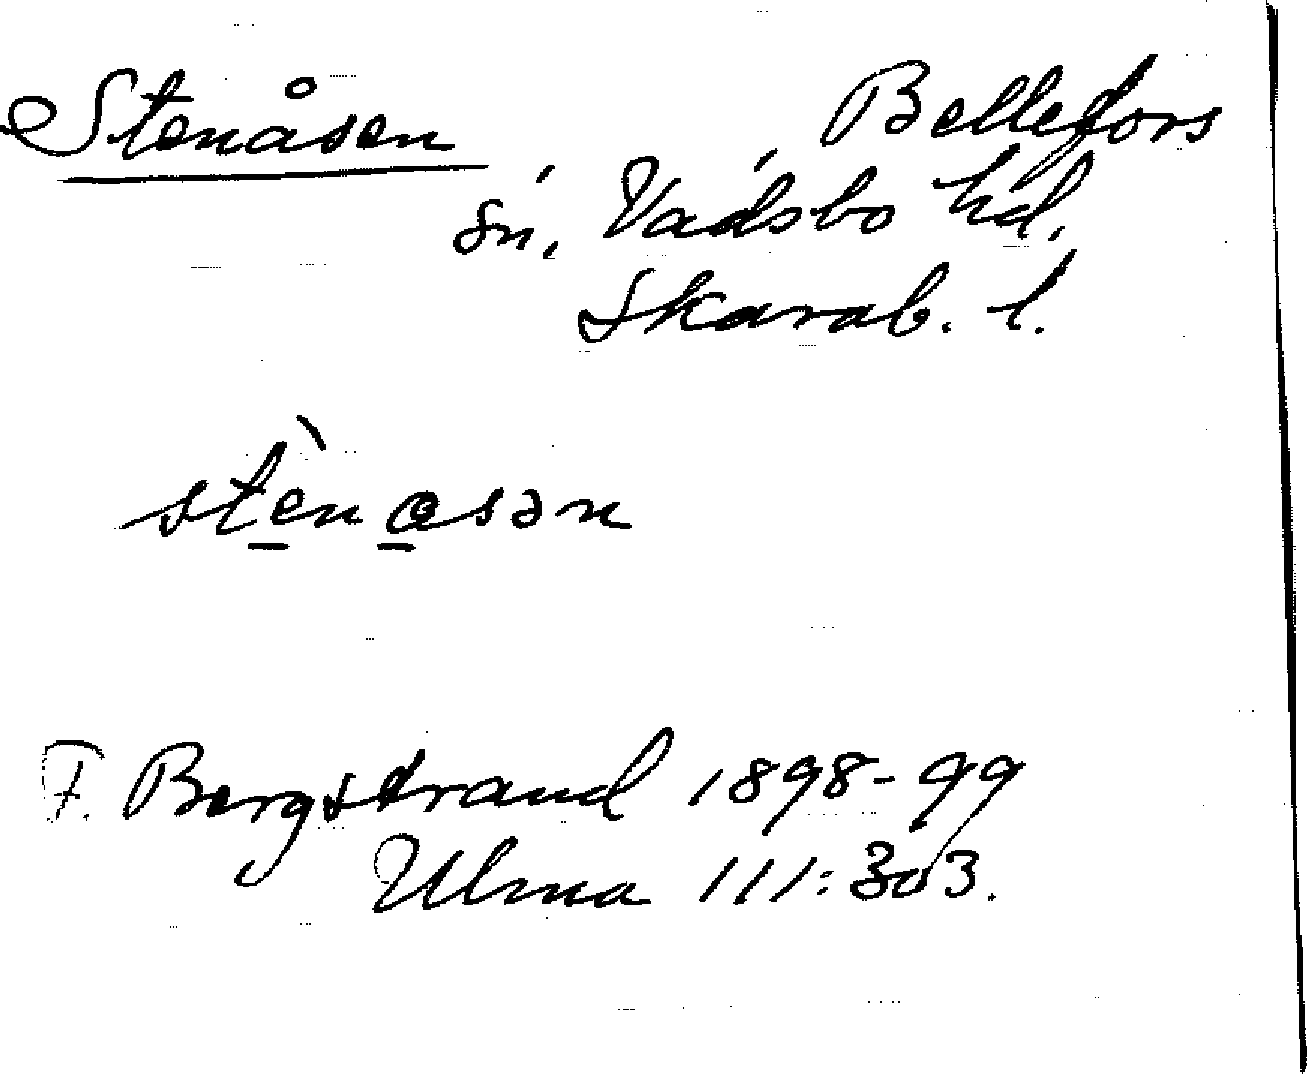 Stenåsen Bellefors
sn. Vadsbo hd.
Skarab. l.
stèn åsən
F. Bergstrand 1898-99
Ulma 111:303.